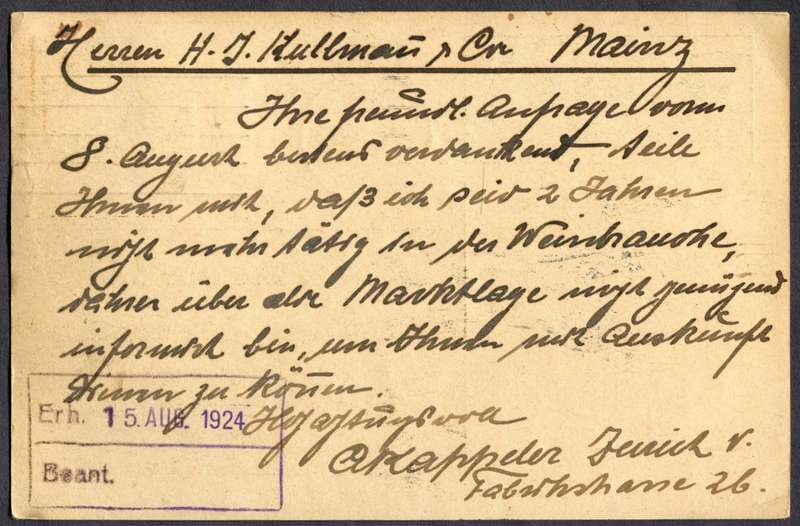 Herren H. J. Kullmann & Co Mainz
Ihre freundl. Anfrage vom
8. August bestens verdankend, teile
Ihnen mit, daß ich seid 2 Jahren
nicht mehr tätig in der Weinbranche,
daher über die Marktlage nicht genügend
informirt bin, um Ihnen mit Auskünft
dienen zu können.
Hochachtungsvoll
A Kappeler Zürich V.
Fabrikstrasse 26.
Erh. 15. AUG. 1924
Beant.